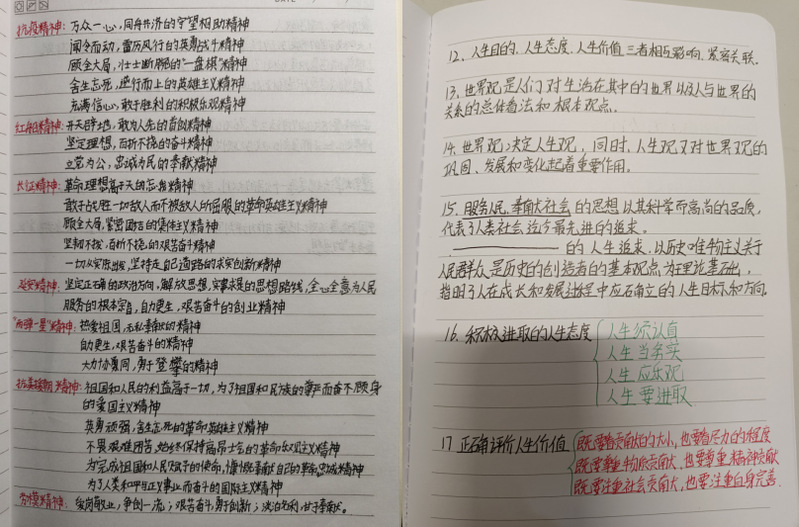 DATE
抗疫精神：万众一心，同舟共济的守望相助精神
闻令而动，雷厉风行的英勇战斗精神
顾全大局，壮士断腕的"一盘棋"精神
舍生忘死，逆行而上的英雄主义精神
充满信心，敢于胜利的积极乐观精神
红船精神：开天辟地，敢为人先的首创精神
坚定理想，百折不挠的奋斗精神
立党为公，忠诚为民的奉献精神
长征精神：革命理想高于天的忘我精神
敢于战胜一切敌人而不被敌人所屈服的革命英雄主义精神
顾全大局，紧密团结的集体主义精神
坚韧不拔，百折不挠，的艰苦奋斗精神
一切从实际出发，坚持走自己道路的求实创新精神
延安精神：坚定正确的政治方向，解放思想，实事求是的思想路线，全心全意为人民
服务的根本宗旨，自力更生，艰苦奋斗的创业精神
"两弹一星"精神：热爱祖国，无私奉献的精神
自力更生，艰苦奋斗的精神
大力协同，勇于登攀的精神
抗美援朝精神：祖国和人民的利益高于一切，为了祖国和民族的尊严而奋不顾身
的爱国主义精神
英勇顽强，舍生忘死的革命英雄主义精神
不畏艰难困苦，始终保持高昂士气的革命乐观主义精神
为完成祖国和人民赋予的使命，慷慨奉献自己的革命忠诚精神
为了人类和平与正义事业而奋斗的国际主义精神
劳模精神：爱岗敬业，争创一流；艰苦奋斗，勇于创新；淡泊名利，甘于奉献。
12、人生目的、人生态度、人生价值三者相互影响、紧密关联.
13、世界观是人们对生活在其中的世界以及人与世界的
关系的总体看法和根本观点.
14、世界观决定人生观，同时，人生观又对世界观的
巩固、发展和变化起着重要作用。
15、服务人民、奉献社会的思想以其科学而高尚的品质，
代表了人类社会迄今最先进的追求。
的人生追求，以历史唯物主义关于
人民群众是历史的创造者的基本观点为理论基础，
指明了人在成长和发展过程中应确立的人生目标和方向。
16、积极进取的人生态度
人生须认真
人生当务实
人生应乐观
人生要进取
17、正确评价人生价值
既要看贡献的大小，也要看尽力的程度
既要尊重物质贡献，也要尊重精神贡献
既要注重社会贡献，也要注重自身完善.